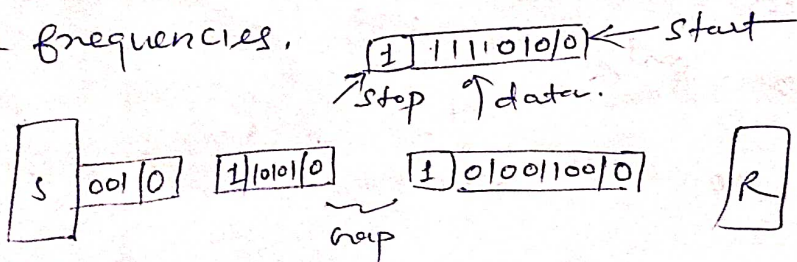 - frequencies.
1 1111010 0 ← start
stop data.
S 001 0 1 10101 0 1 01001100 0 R
Gap